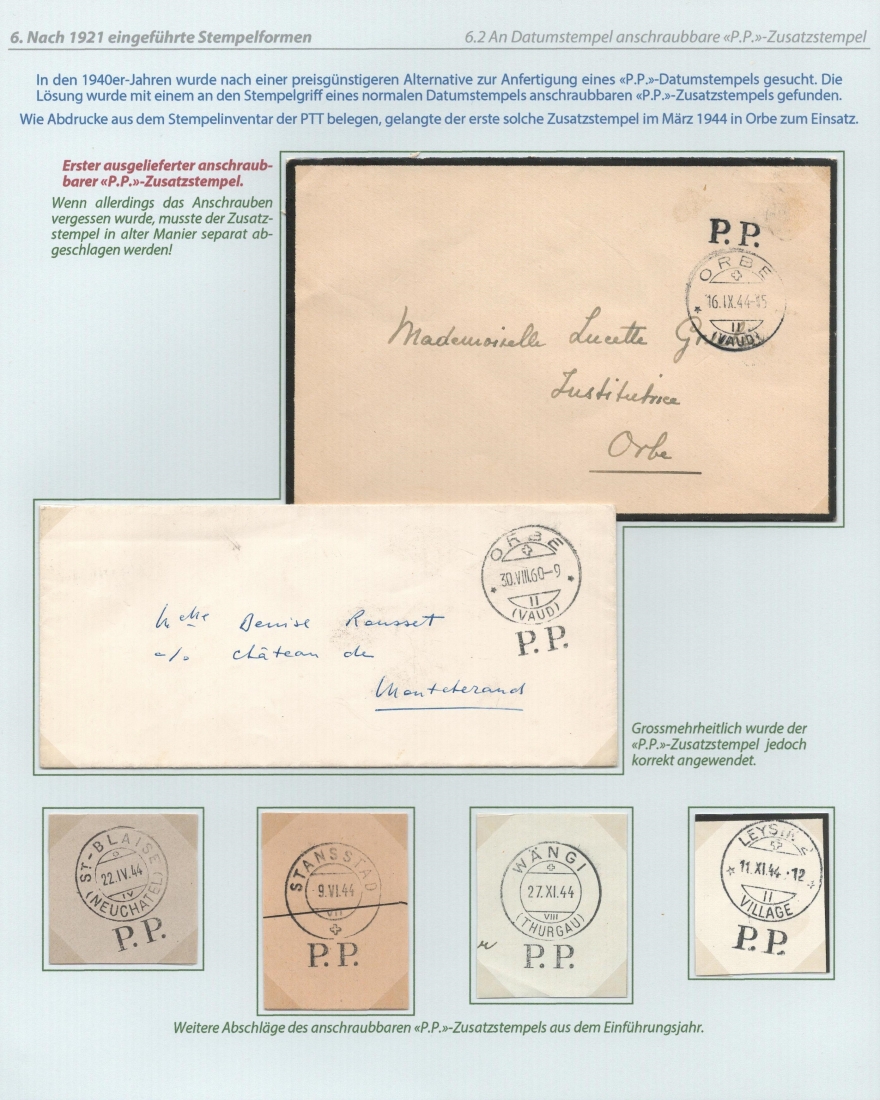 6. Nach 1921 eingeführte Stempelformen
6.2 An Datumstempel anschraubbare «P.P.»-Zusatzstempel
In den 1940er-Jahren wurde nach einer preisgünstigeren Alternative zur Anfertigung eines «P.P.»-Datumstempels gesucht. Die
Lösung wurde mit einem an den Stempelgriff eines normalen Datumstempels anschraubbaren «P.P.»-Zusatzstempels gefunden.
Wie Abdrucke aus dem Stempelinventar der PTT belegen, gelangte der erste solche Zusatzstempel im März 1944 in Orbe zum Einsatz.
Erster ausgelieferter anschraub-
barer «P.P.»-Zusatzstempel.
Wenn allerdings das Anschrauben
vergessen wurde, musste der Zusatz-
stempel in alter Manier separat ab-
geschlagen werden!
P.P.
ORBE
16.IX.44-15
II
(VAUD)
Mademoiselle Lucette
Institutrice
Orbe
ORBE
30.VIII.60-9
II
(VAUD)
P.P.
Denise Rousset
c/o château de
Montcherand
Grossmehrheitlich wurde der
«P.P.»-Zusatzstempel jedoch
korrekt angewendet.
ST-BLAISE
22.IV.44
IV
(NEUCHATEL)
P.P.
STANSSTAD
9.VI.44
VII
P.P.
WÄNGI
27.XI.44
VIII
(THURGAU)
P.P.
11.XI.44-12
II
VILLAGE
P.P.
Weitere Abschläge des anschraubbaren «P.P.»-Zusatzstempels aus dem Einführungsjahr.